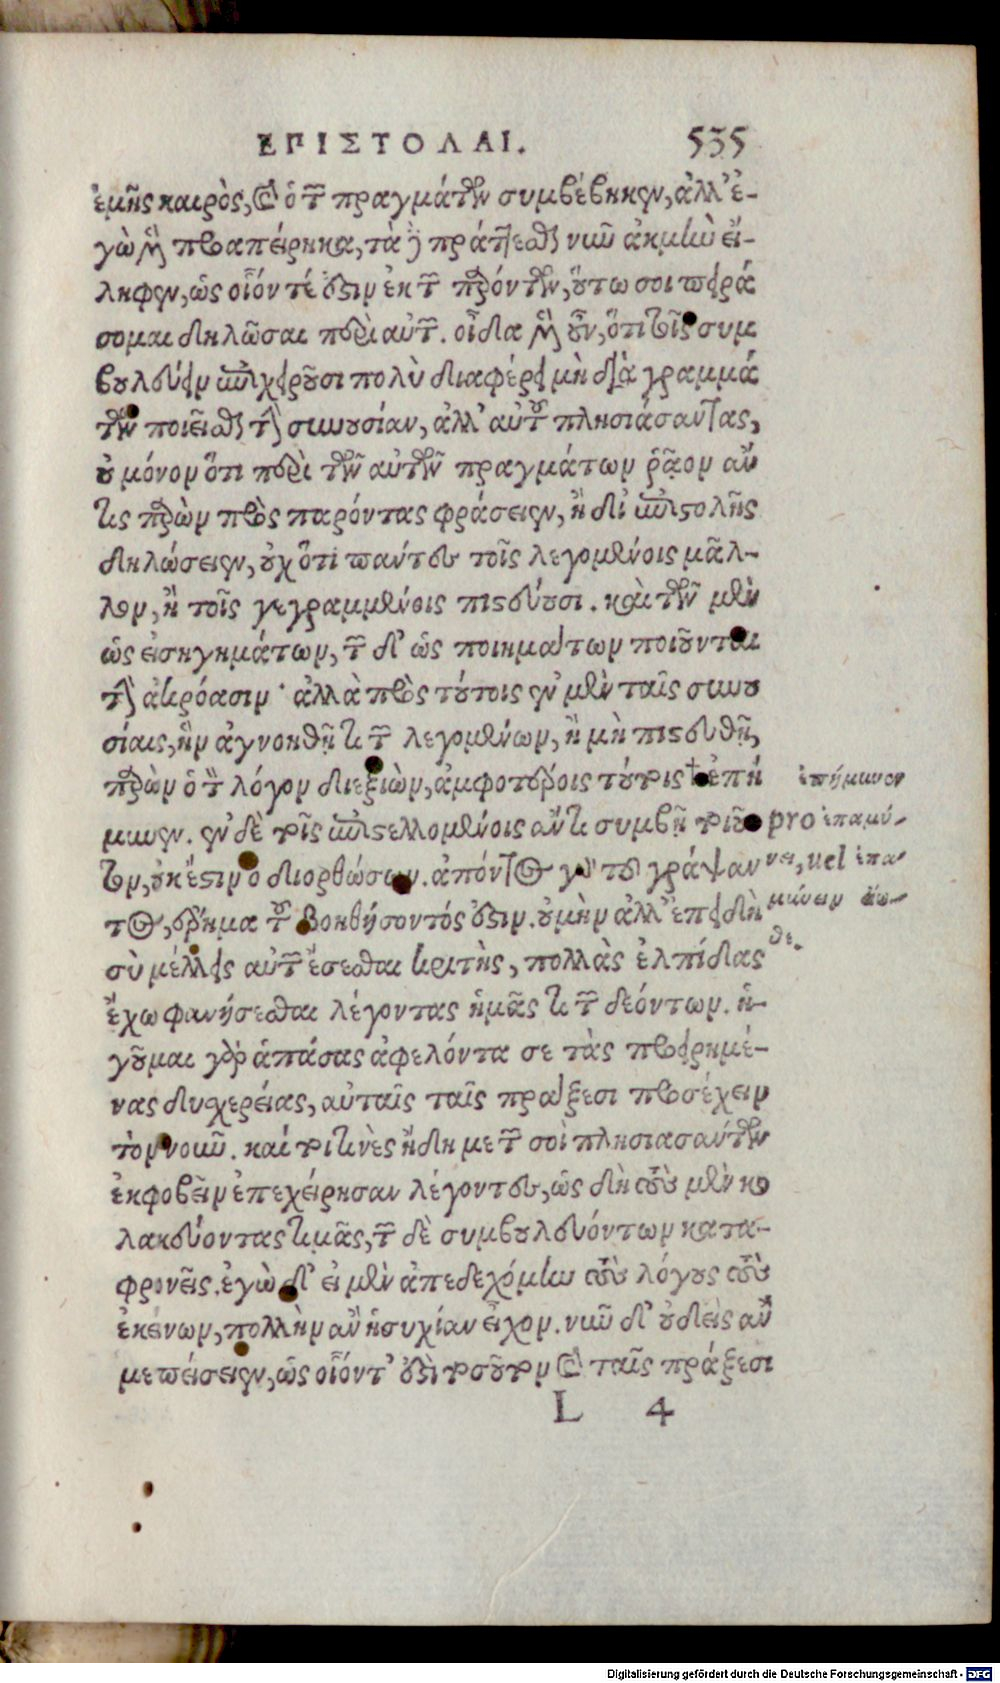 ΕΠΙΣΤΟΛΑΙ. 535
ἐμῆς καιρὸς, καὶ ὁ τῶν πραγμάτων συμβέβηκεν, ἀλλ' ἐ-
γὼ μὲν προαπείρηκα, τὰ δὲ πράττεσθαι νῦν ἀκμὴν εἴ-
ληφεν, ὡς οἷόν τέ ἐστιν ἐκ τῶν παρόντων, οὕτω σοι πειρά
σομαι δηλῶσαι περὶ αὐτῶν. οἶδα μὲν οὖν, ὅτι τοῖς συμ
βουλεύειν ἐπιχειροῦσι πολὺ διαφέρει μὴ διὰ γραμμά
των ποιεῖσθαι τὴν συνουσίαν, ἀλλ' αὐτοὺς πλησιάσαντας,
οὐ μόνον ὅτι περὶ τῶν αὐτῶν πραγμάτων ῥᾷον ἄν
τις παρὼν πρὸς παρόντας φράσειεν, ἢ δι' ἐπιστολῆς
δηλώσειεν, οὐχ ὅτι πάντες τοῖς λεγομένοις μᾶλ-
λον, ἢ τοῖς γεγραμμένοις πιστεύουσι. καὶ τῶν μὲν
ὡς εἰσηγημάτων, τῶν δ' ὡς ποιημάτων ποιοῦνται
τὴν ἀκρόασιν· ἀλλὰ πρὸς τούτοις ἐν μὲν ταῖς συνου
σίαις, ἢν ἀγνοηθῇ τι τῶν λεγομένων, ἢ μὴ πιστευθῇ,
παρὼν ὁ τὸν λόγον διεξιὼν, ἀμφοτέροις τούτοις † ἐπή
μυνεν. ἐν δὲ τοῖς ἐπιστελλομένοις ἄν τι συμβῇ τοιοῦ
τον, οὐκ ἔστιν ὁ διορθώσων. ἀπόντος γὰρ τοῦ γράψαν
τος, ἔρημα τοῦ βοηθήσοντός ἐστιν. οὐ μὴν ἀλλ' ἐπειδὴ
σὺ μέλλεις αὐτῶν ἔσεσθαι κριτὴς, πολλὰς ἐλπίδας
ἔχω φανήσεσθαι λέγοντας ἡμᾶς τι τῶν δεόντων. ἡ-
γοῦμαι γὰρ ἁπάσας ἀφελόντα σε τὰς προειρημέ-
νας δυσχερείας, αὐταῖς ταῖς πράξεσι προσέχειν
τὸν νοῦν. καί τοι τινὲς ἤδη με τῶν σοὶ πλησιασάντων
ἐκφοβεῖν ἐπεχείρησαν λέγοντες, ὡς δὴ τοὺς μὲν κο
λακεύοντας τιμᾶς, τῶν δὲ συμβουλευόντων κατα-
φρονεῖς. ἐγὼ δ' εἰ μὲν ἀπεδεχόμην τοὺς λόγους τοὺς
ἐκείνων, πολλὴν ἂν ἡσυχίαν εἶχον. νῦν δ' οὐδεὶς ἄν
με πείσειεν, ὡς οἷόντ' ἐστὶ τοσοῦτον καὶ ταῖς πράξεσι
ἐπήμυνεν
pro ἐπαμύ-
νει, uel ἐπα-
μύνειν εἴω-
θε.
L 4
Digitalisierung gefördert durch die Deutsche Forschungsgemeinschaft - DFG